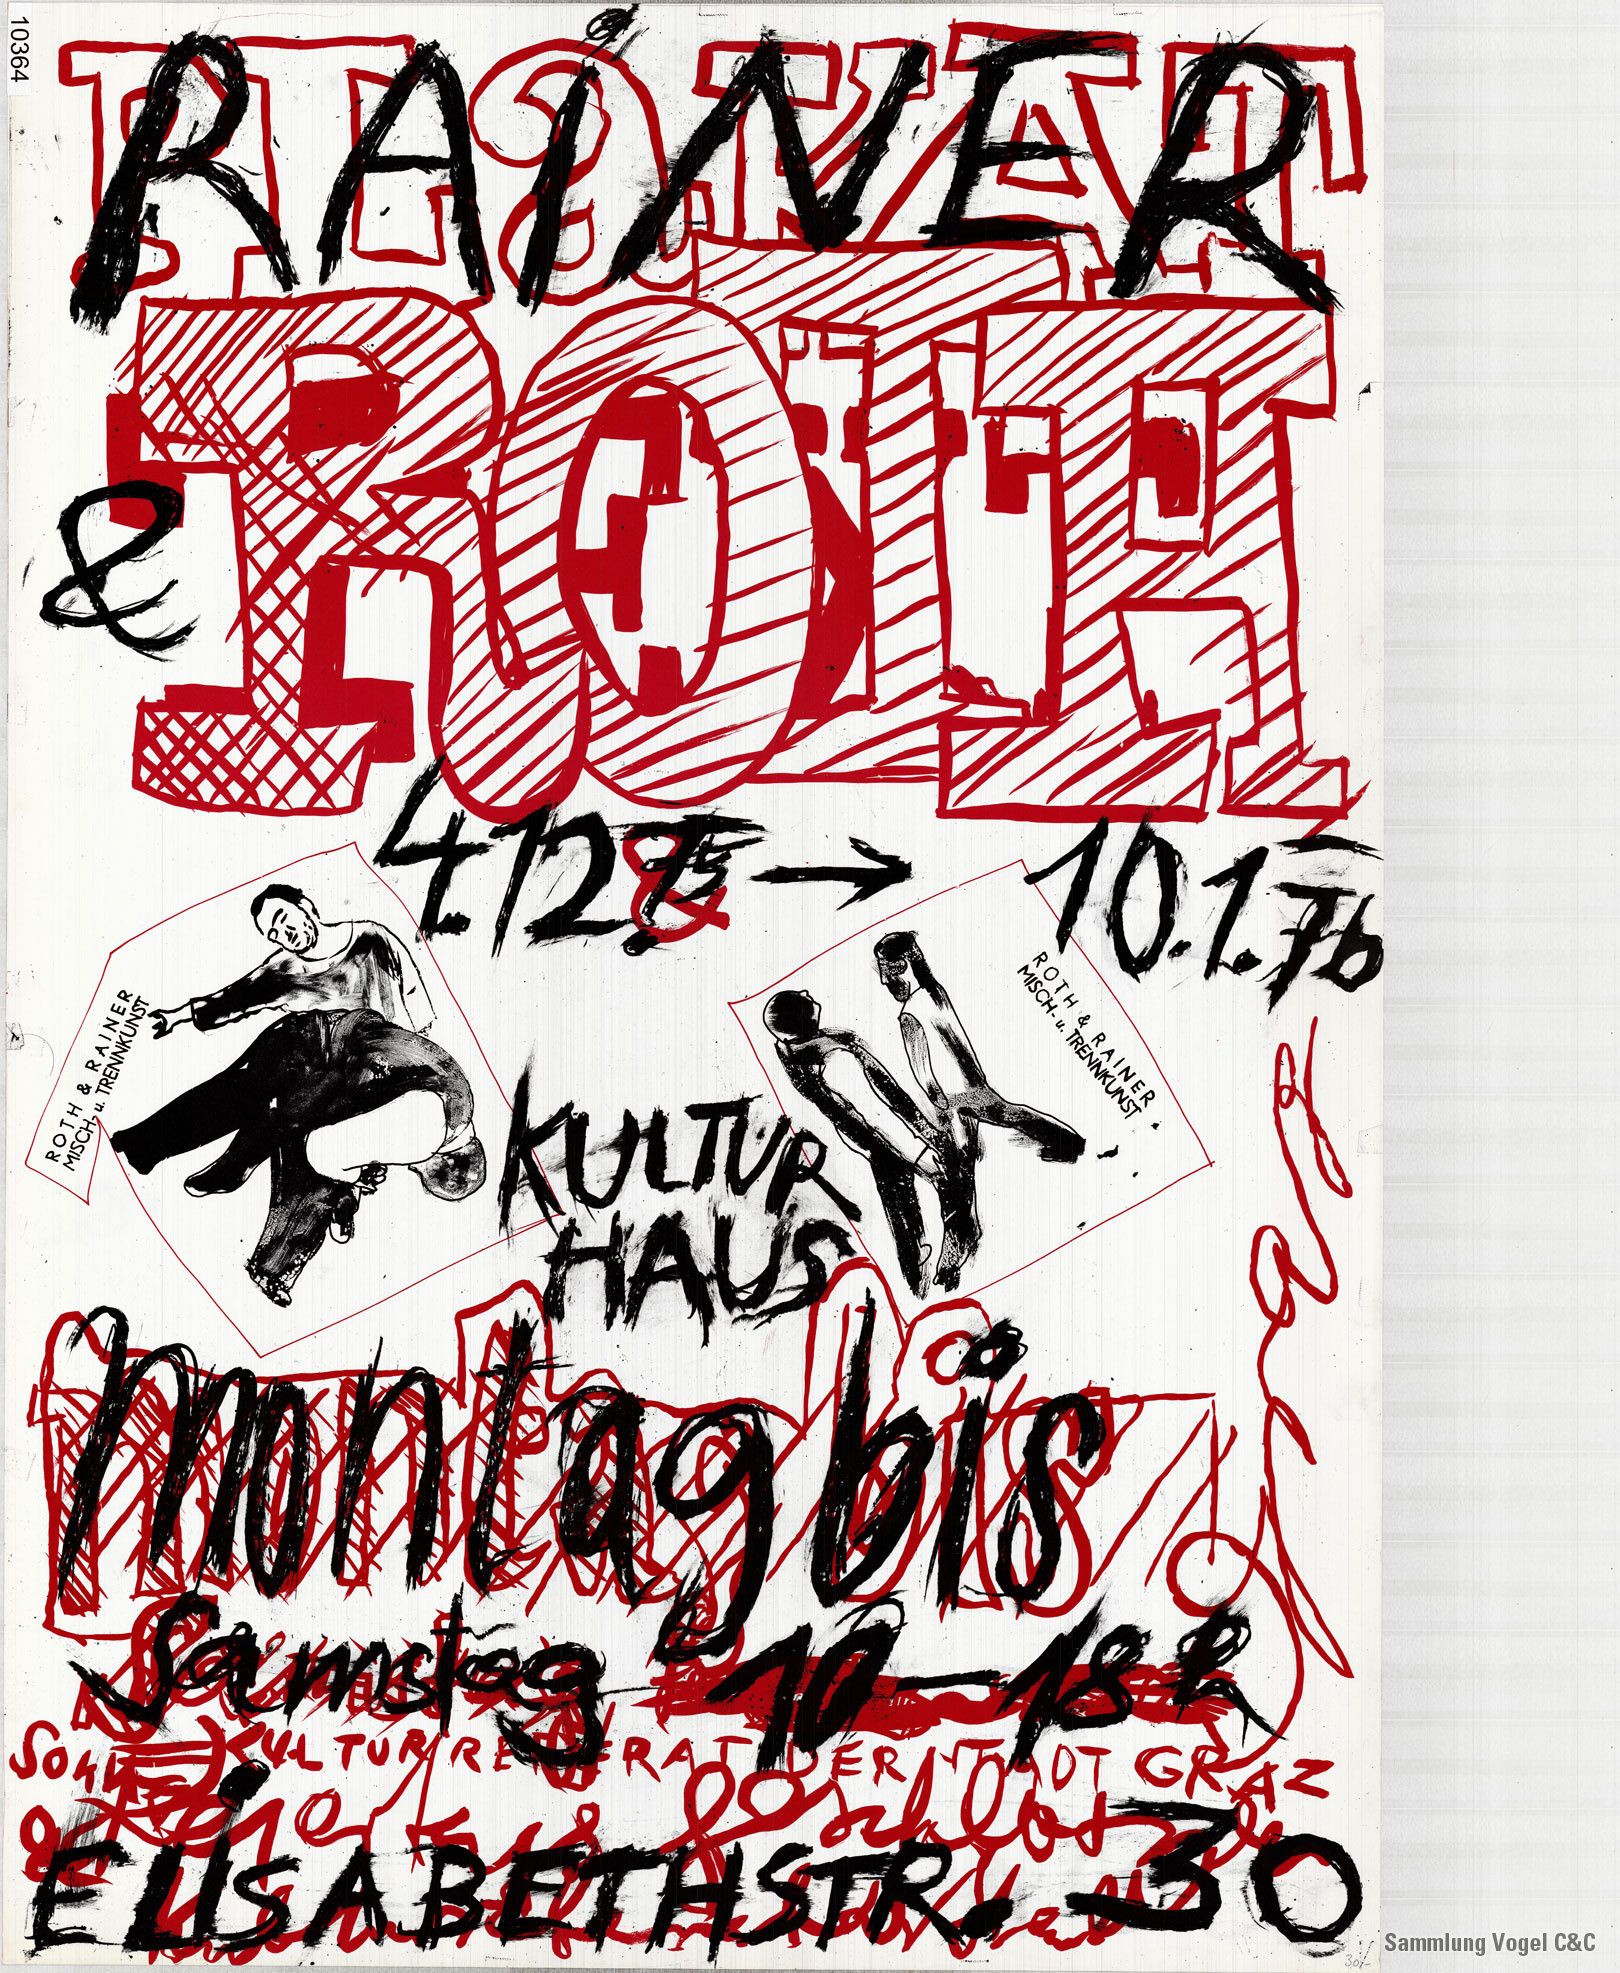 10364
RAINER
& ROTH
4.12.75 → 10.1.76
&
ROTH & RAINER
MISCH- u. TRENNKUNST
ROTH & RAINER
MISCH- u. TRENNKUNST
KULTUR
HAUS
montag bis
Samstag 10-18h
KULTURREFERAT DER STADT GRAZ
ELISABETHSTR. 30
Sammlung Vogel C&C